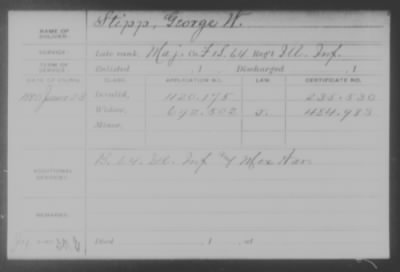 NAME OF SOLDIER: Stipp, George W.
SERVICE: Late rank, Maj. Co. F. S. 64 Reg't Ill. Inf.
TERM OF SERVICE: Enlisted , 1 Discharged , 1
DATE OF FILING. CLASS. APPLICATION NO. LAW. CERTIFICATE NO.
1880 June 28 Invalid, 420.175 235.530
Widow, 692.502 J. 484.983
Minor,
ADDITIONAL SERVICES: 64 Ill. Inf & Mex War
REMARKS:
Died , 1 , at